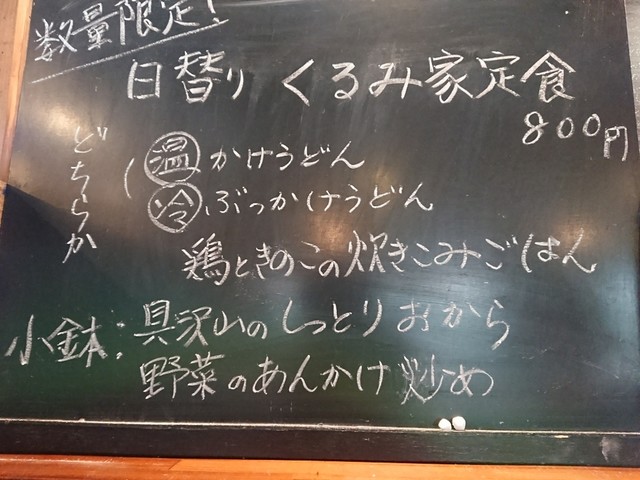 数量限定!
日替り くるみ家定食
800円
どちらか
(温 かけうどん
冷 ぶっかけうどん
鶏ときのこの炊きこみごはん
小鉢: 具沢山のしっとりおから
野菜のあんかけ炒め